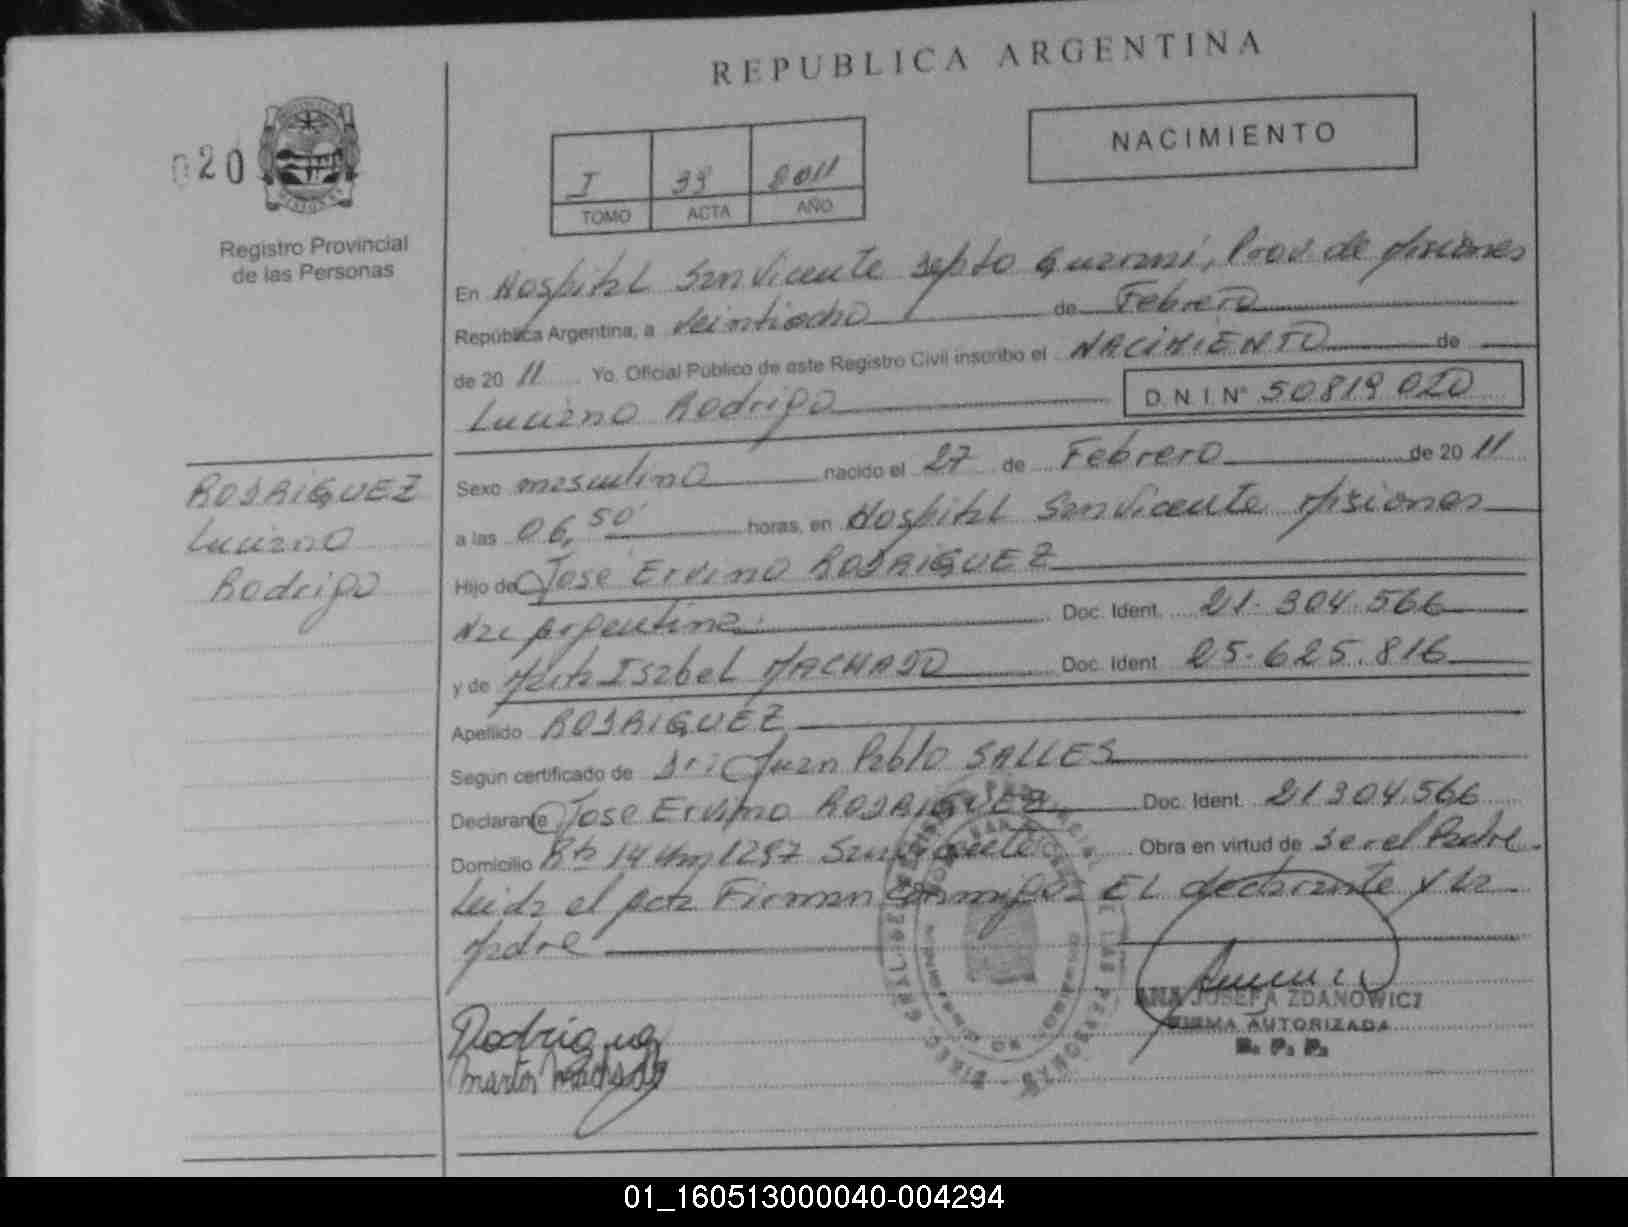 REPUBLICA ARGENTINA
NACIMIENTO
020
I 33 2011
TOMO ACTA AÑO
Registro Provincial
de las Personas
En Hospital San Vicente Depto Guaraní, Prov. de Misiones
República Argentina, a veintiocho de Febrero
de 20 11 Yo, Oficial Público de este Registro Civil inscribo el NACIMIENTO de
Luciano Rodrigo D.N.I. N° 50819 020
RODRIGUEZ
Luciano
Rodrigo
Sexo masculino nacido el 27 de Febrero de 20 11
a las 06,50' horas, en Hospital San Vicente Misiones
Hijo de Jose Ervino RODRIGUEZ
Nac Argentina. Doc. Ident. 21.304.566
y de Marta Isabel MACHADO Doc. Ident. 25.625.816
Apellido RODRIGUEZ
Según certificado de Dr: Juan Pablo SALLES
Declarante Jose Ervino RODRIGUEZ Doc. Ident. 21304.566
Domicilio Rta 14 Km 1297 San Vicente Obra en virtud de ser el Padre.
Leida el acta Firman conmigo: EL declarante y la
Madre
Rodriguez
Marta Machado
ANA JOSEFA ZDANOWICZ
FIRMA AUTORIZADA
R. P. P.
01_160513000040-004294